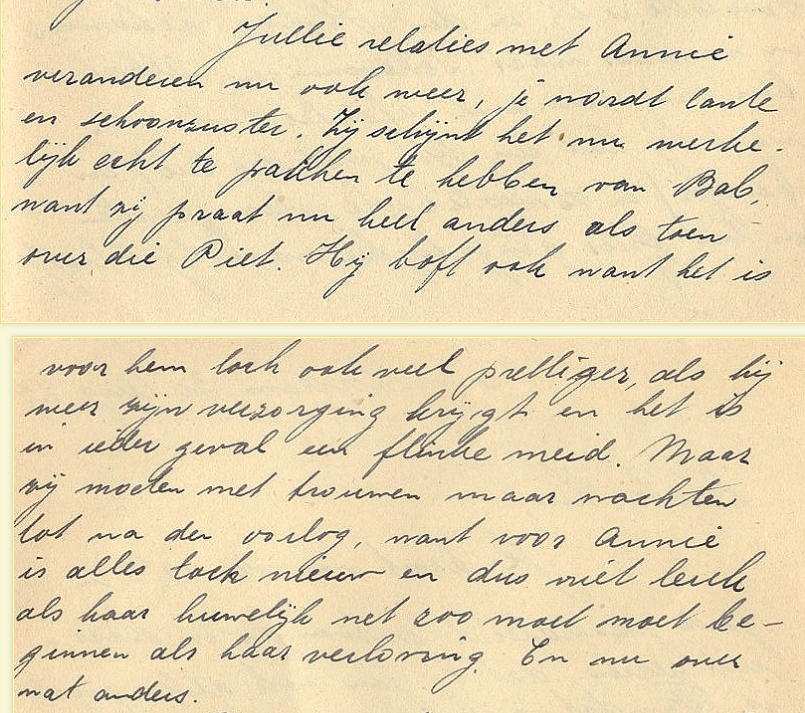 Jullie relaties met Annie
veranderen nu ook weer, je wordt tante
en schoonzuster. Zij schijnt het nu werke-
lijk echt te pakken te hebben van Bab,
want zij praat nu heel anders als toen
over die Piet. Hij boft ook want het is
voor hem toch ook veel prettiger, als hij
weer zijn verzorging krijgt en het is
in ieder geval een flinke meid. Maar
zij moeten met trouwen maar wachten
tot na den oorlog, want voor Annie
is alles toch nieuw en dus niet leuk
als haar huwelijk net zoo moet moet be-
ginnen als haar verloving. En nu over
wat anders.